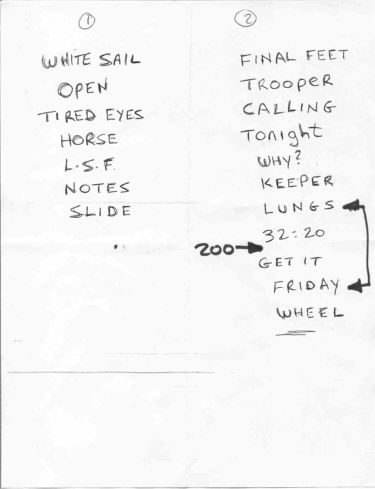 1
WHITE SAIL
OPEN
TIRED EYES
HORSE
L.S.F.
NOTES
SLIDE
2
FINAL FEET
TROOPER
CALLING
TONIGHT
WHY?
KEEPER
LUNGS
32:20
200
GET IT
FRIDAY
WHEEL